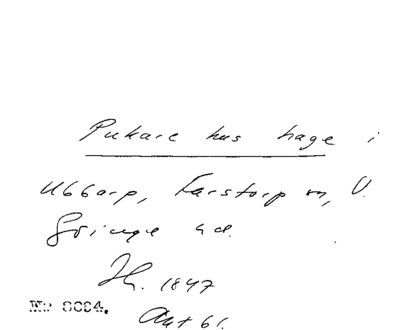 Pukare hus hage i
Ubbarp, Farstorp sn, V.
Göinge hd.
1847
Akt 61.